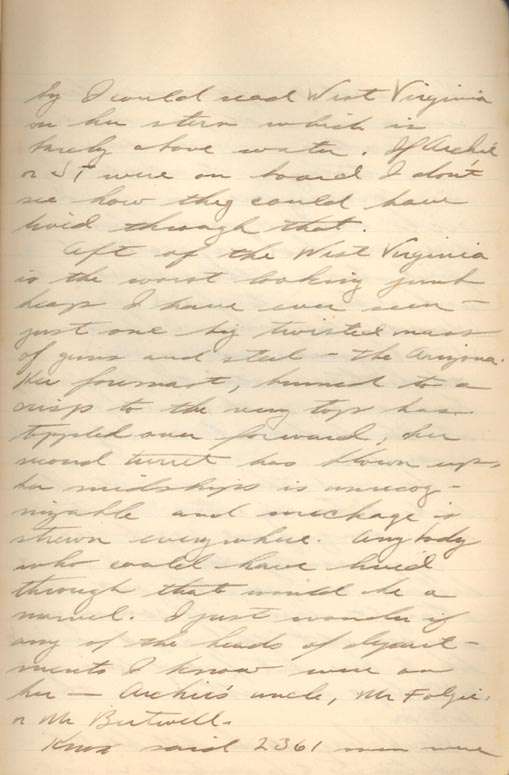 by I could read West Virginia
on her stern which is
barely above water. If Archie
or JT were on board I don't
see how they could have
lived through that.
Aft of the West Virginia
is the worst looking junk
heap I have ever seen –
just one big twisted mass
of guns and steel – the Arizona.
Her foremast, burned to a
crisp to the very top has
toppled over forward, her
second turret has blown up,
her midships is unrecog-
nizable and wreckage is
strewn everywhere. Anybody
who could have lived
through that would be a
marvel. I just wonder if
any of the heads of depart-
ments I know were on
her – Archie's uncle, Mr
or Mr
Knox said 2361 men were